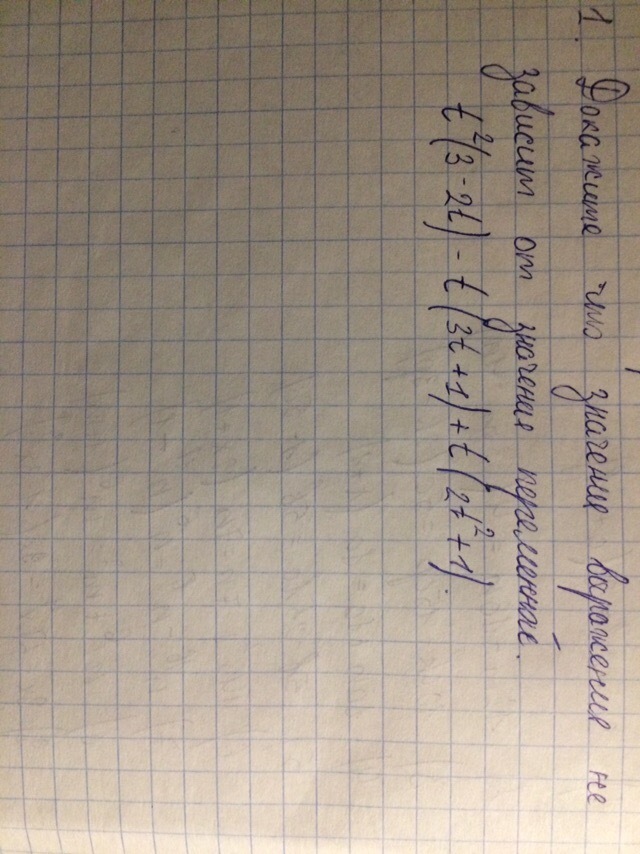 1. Докажите что значение выражения не
зависит от значения переменной.
t²(3-2t)-t(3t+1)+t(2t²+1).